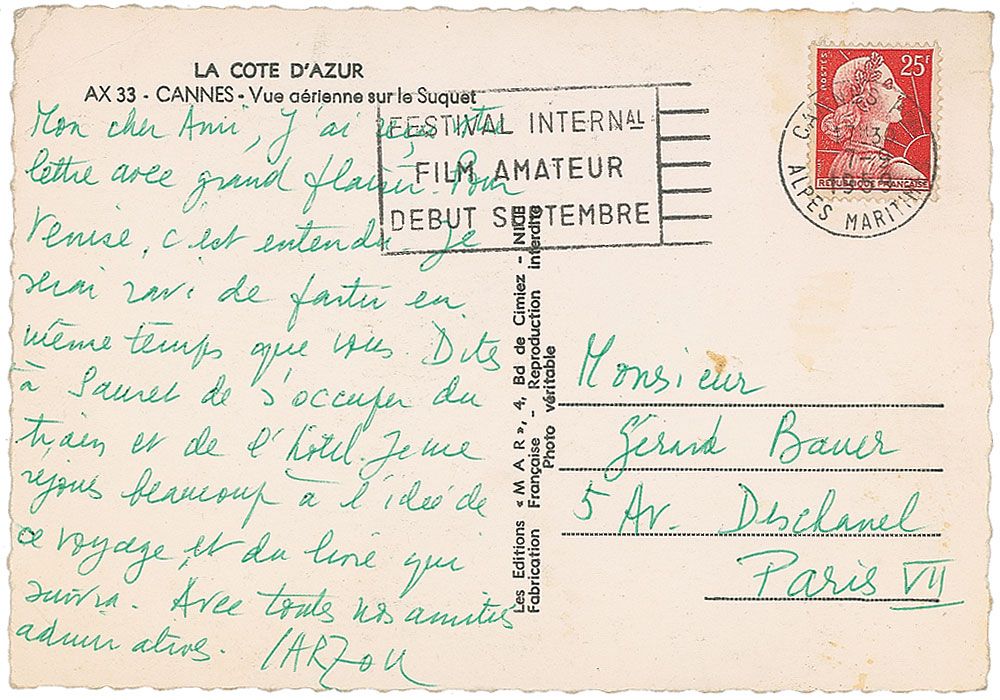 LA COTE D'AZUR
AX 33 - CANNES - Vue aérienne sur le Suquet
Mon cher Ami, J'ai reçu votre
lettre avec grand plaisir. Pour
Venise, c'est entendu. Je
serai ravi de partir en
même temps que vous. Dites
à Sauret de s'occuper du
train et de l'hôtel. Je me
réjouis beaucoup à l'idée de
ce voyage, et du livre qui
suivra. Avec toutes nos amitiés
admiratives. CARZOU
FESTIVAL INTERNAL
FILM AMATEUR
DEBUT SEPTEMBRE
POSTES
25F
REPUBLIQUE FRANÇAISE
ALPES MARITIMES
Les Editions « M A R », 4, Bd de Cimiez - NICE
Fabrication Française - Reproduction interdite
Photo véritable
Monsieur
Gérard Bauer
5 Av. Deschanel
Paris VII